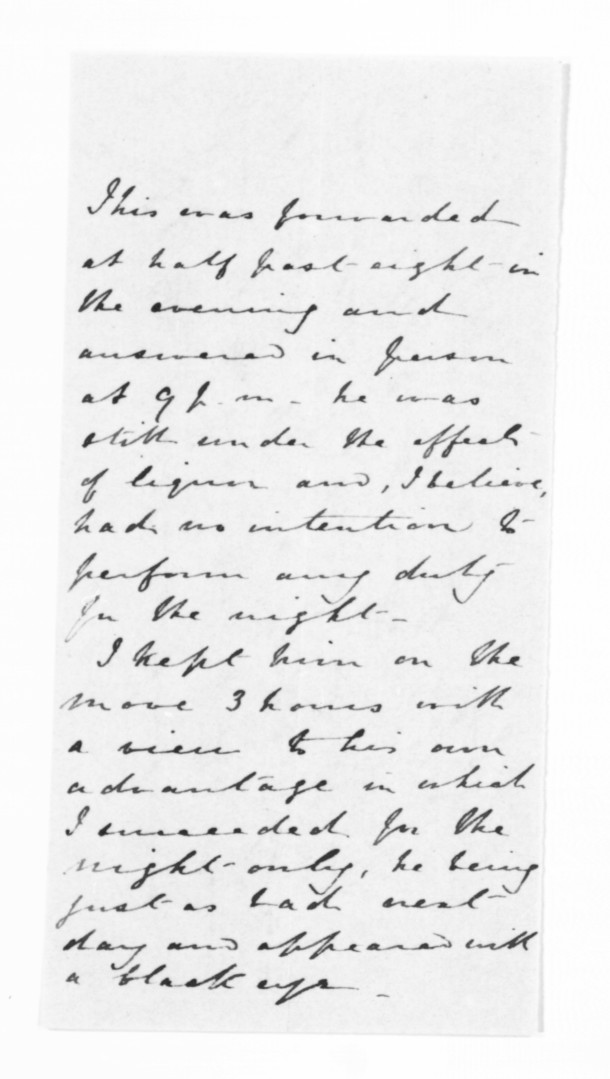 This was forwarded
at half past eight in
the evening and
answered in person
at 9 p.m - he was
still under the effect
of liquor and, I believe,
had no intention to
perform any duty
for the night -
I kept him on the
move 3 hours with
a view to his own
advantage in which
I succeeded for the
night only, he being
just as bad next
day and appeared with
a black eye -